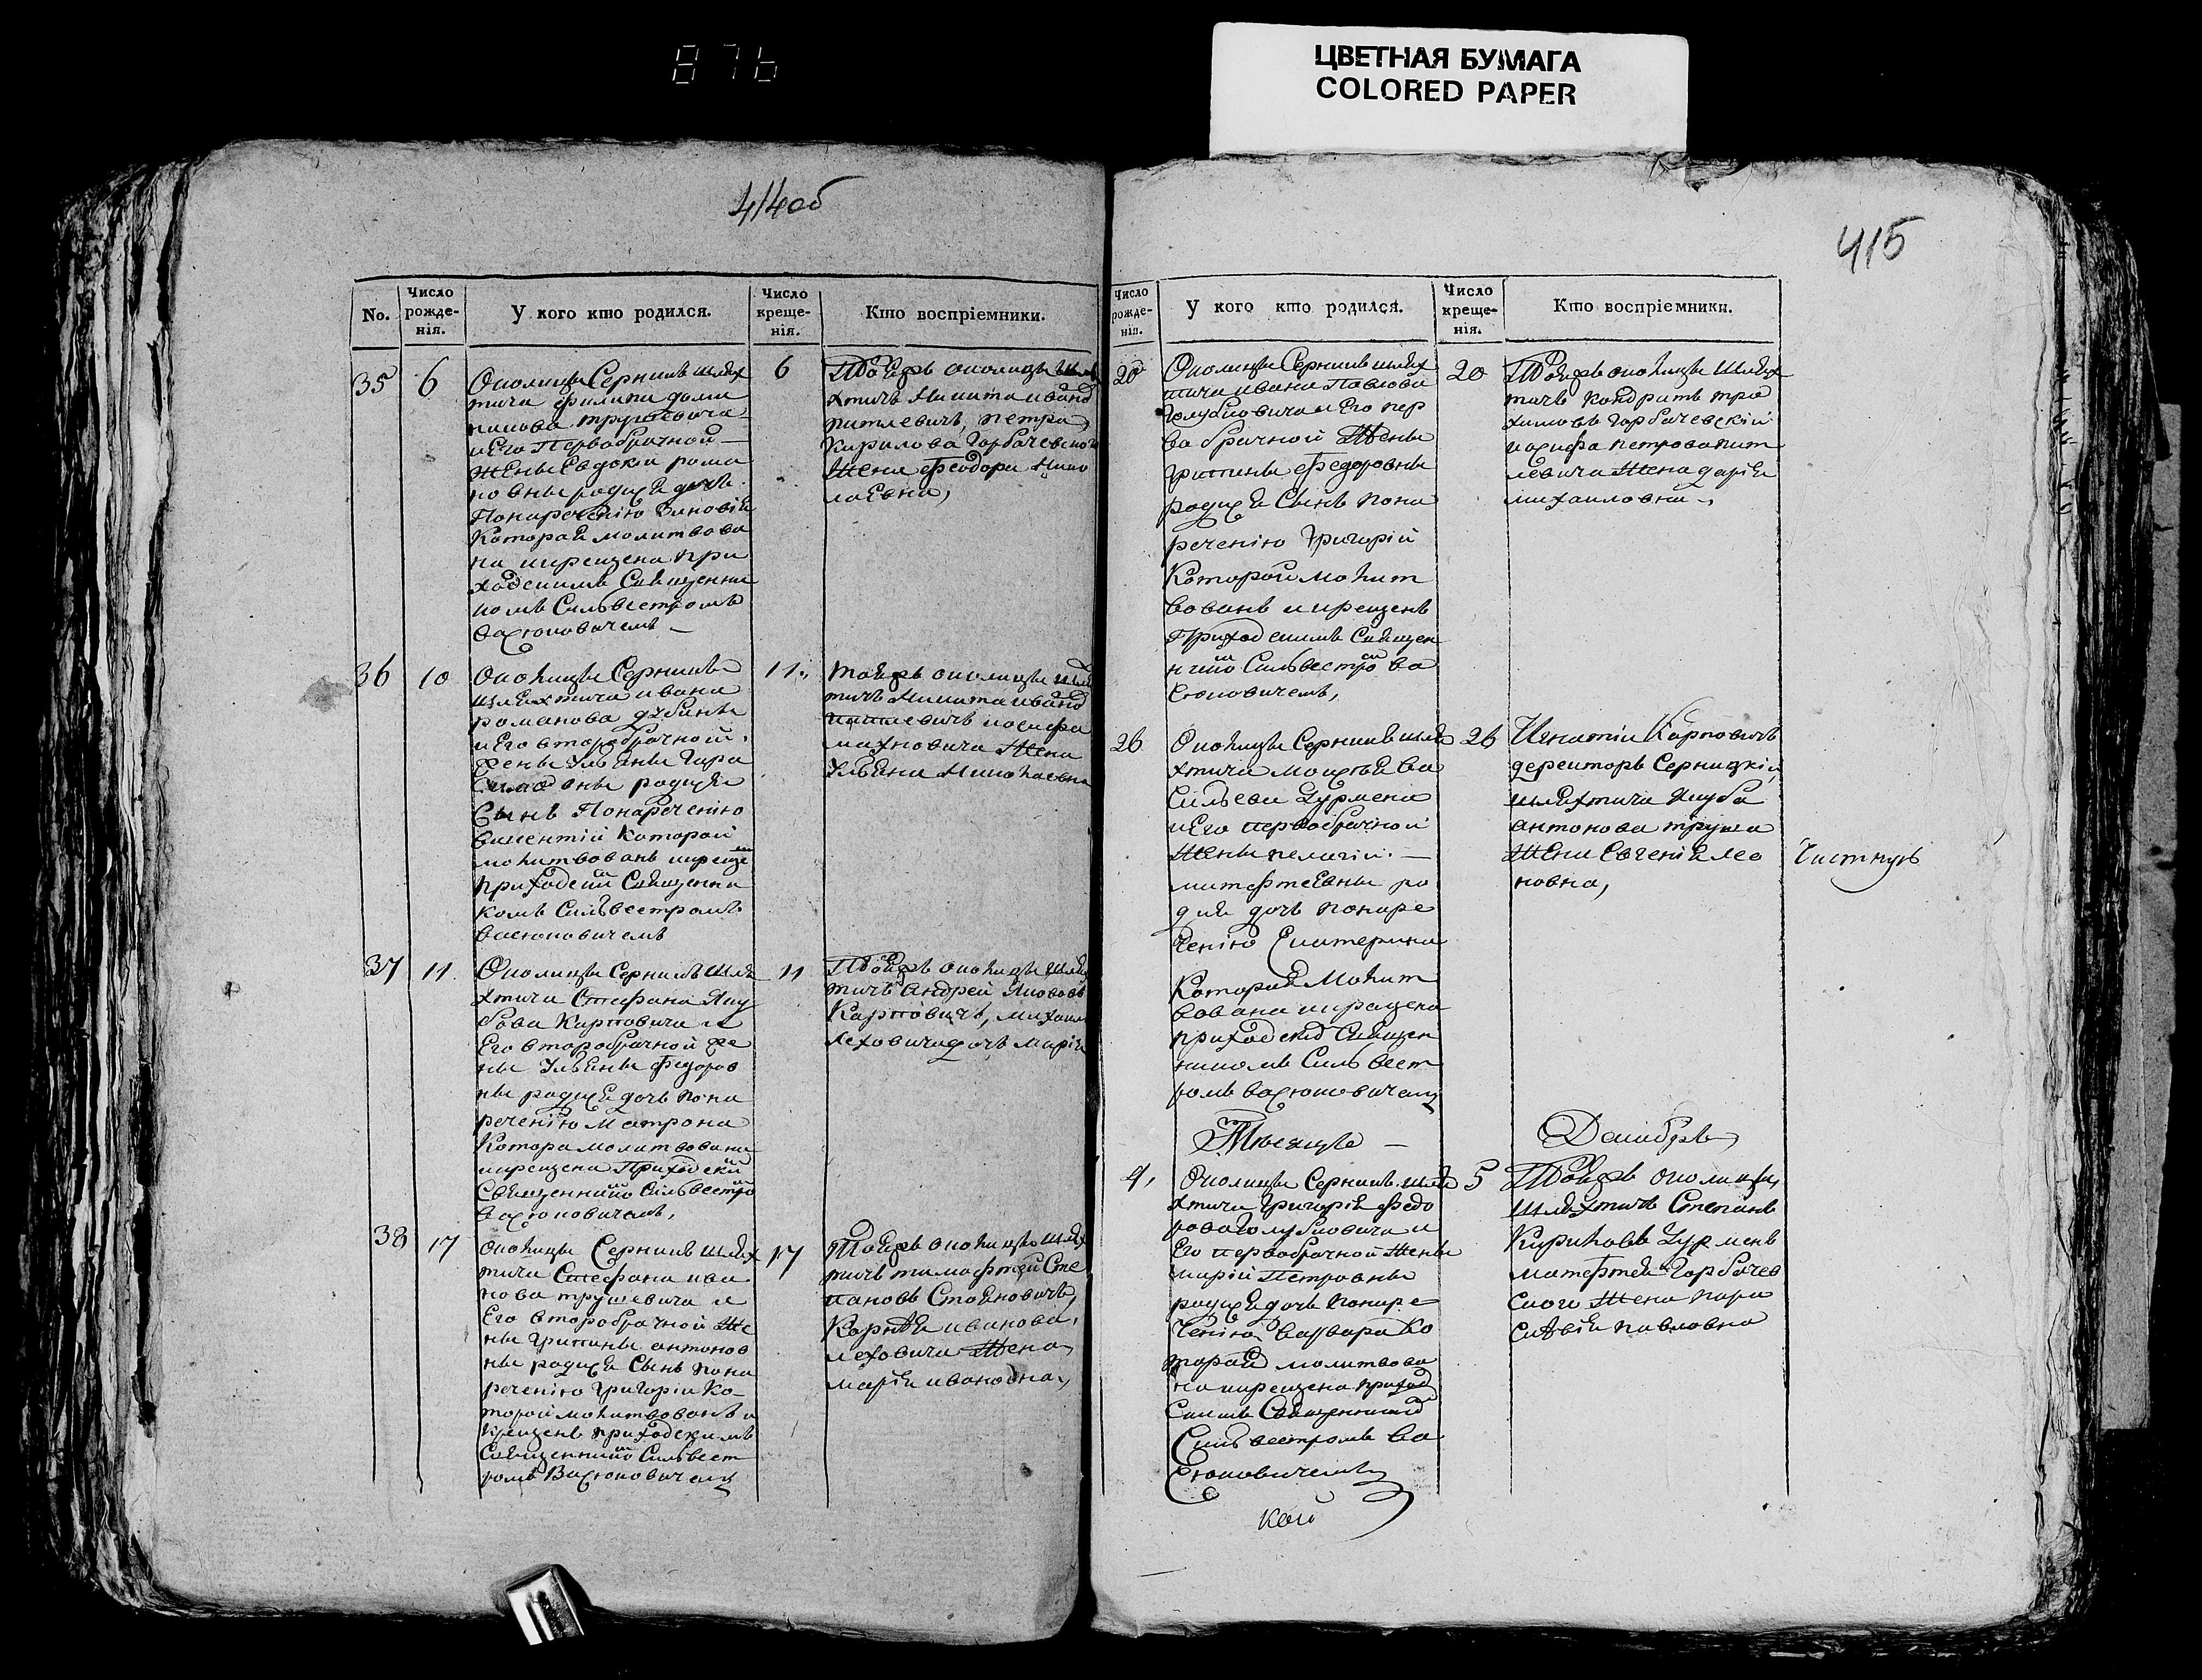 876
ЦВЕТНАЯ БУМАГА
COLORED PAPER
414об
No.
Число рожде-нія.
У кого кто родился.
Число креще-нія.
Кто воспріемники.
35
6
Околицы Серникъ шлях
тича филипа доми
никова трушевича
и Его Первобрачной —
Жены Евдокіи рома
новны родися дочь
Понареченію Зиновія
Которая молитвова
на икрещена при
ходскимъ Священни
комъ Силвестромъ
васюковичемъ —
6
Тоеяжъ околицы шля
хтичъ Никита иванов
питлевичъ, петра
Кирилова Горбачевского
Жена Феодора Нико
лаевна,
36
10
Околицы Серникъ
шляхтича ивана
романова дубины
и Его второбрачной
жены Ульяны Гара
родися
Сынъ Понареченію
викентій Которой
молитвованъ икреще
приходским Священни
комъ Силвестромъ
васюковичемъ
11
тояжъ околицы шля
тичъ Никита иванов
питлевичъ иосифа
махновича Жена
Ульяна Николаевна
37
11
Околицы Серникъ шля
хтича Стефана Яку
бова Карповича и
Его второбрачной же
ны Ульяны Федоров
ны родися дочь пона
реченію Матрона
Котора молитвована
икрещена Приходским
Священнико Силвестро
васюковичемъ,
11
Тоеяжъ околицы шлях
тичъ Андрей Яковов
Карповичъ, михаил
леховича дочь Марія
38
17
околицы Серникъ шлях
тича Стефана ива
нова трушевича и
Его второбрачной Же
ны Грипины антонов
ны родися Сынъ пона
реченію Григорій Ко-
торой молитвованъ и
крещенъ приходскимъ
Священнико Силвест
ромъ Васюковичемъ
17
Тоеяжъ околицы шлях
тичъ тимофтей Сте
пановъ Стояновичъ,
Корнѣя иванова
леховича Жена
марія ивановна,
415
Число рожде-нія.
У кого кто родился.
Число креще-нія.
Кто воспріемники.
20
Околицы Серникъ шлях
тича ивана Павлова
Голубовича и Его пер
во брачной Жены
Грипины Федоровны
родися Сынъ пона
реченію Григорій
Которой молит
вованъ и крещенъ
Приходскимъ Священ
нико Силвестро ва
сюковичемъ,
20
Тоеяжъ околицы шлях
тичъ Кондратъ тро
химовъ Горбачевскій
иосифа петрова пит
левича Жена дарія
михаиловна,
26
Околицы Серникъ шля
хтича моисѣя ва
сильева Цурмена
и Его первобрачной
Жены пелагіи —
митефтеевны ро
дися дочь понаре
ченію Екатерина
Которая Молит
вована икрещена
приходским Священ
никомъ Силвест
ромъ васюковичемъ
26
Игнатій Карповичъ
деректоръ Серницкій,
шляхтича Якуба
антонова труша
Жена Евгенія лео
новна,
Мѣсяцъ —
Декабрь
4,
Околицы Серникъ шля
хтича Григорія Федо
рова Голубовича и
Его первобрачной Жены
маріи Петровны
родися дочь понаре
ченію варвара Ко
торая молитвова
на икрещена приход
скимъ Священником
Силвестромъ ва
сюковичемъ
5
Тоеяжъ околицы
шляхтичъ Степанъ
Кириловъ Цурменъ
матефтея Горбачев
скога Жена пара
скѣвія павловна